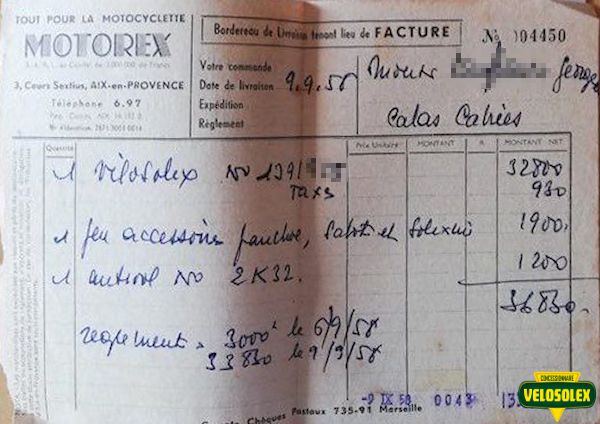 TOUT POUR LA MOTOCYCLETTE
MOTOREX
S. A. R. L. au Capital de 3.000.000 de Francs
3, Cours Sextius, AIX-en-PROVENCE
Téléphone 6.97
Bordereau de Livraison tenant lieu de FACTURE
№ 004450
Votre commande
Date de livraison 9.9.58
Expédition
Règlement
Georges
Calas Cabriès
Quantité Prix Unitaire MONTANT R MONTANT NET
1 Vélosolex No 139 32800
Taxs 930
1 feu accessoire gauche, sabots et 1900
1 antivol No 2K32. 1200
36830.
reglement = 3000 le 6/9/58
33830 le 9/9/58
-9 IX 58 0043
Chèques Postaux 735-91 Marseille
CONCESSIONNAIRE
VELOSOLEX